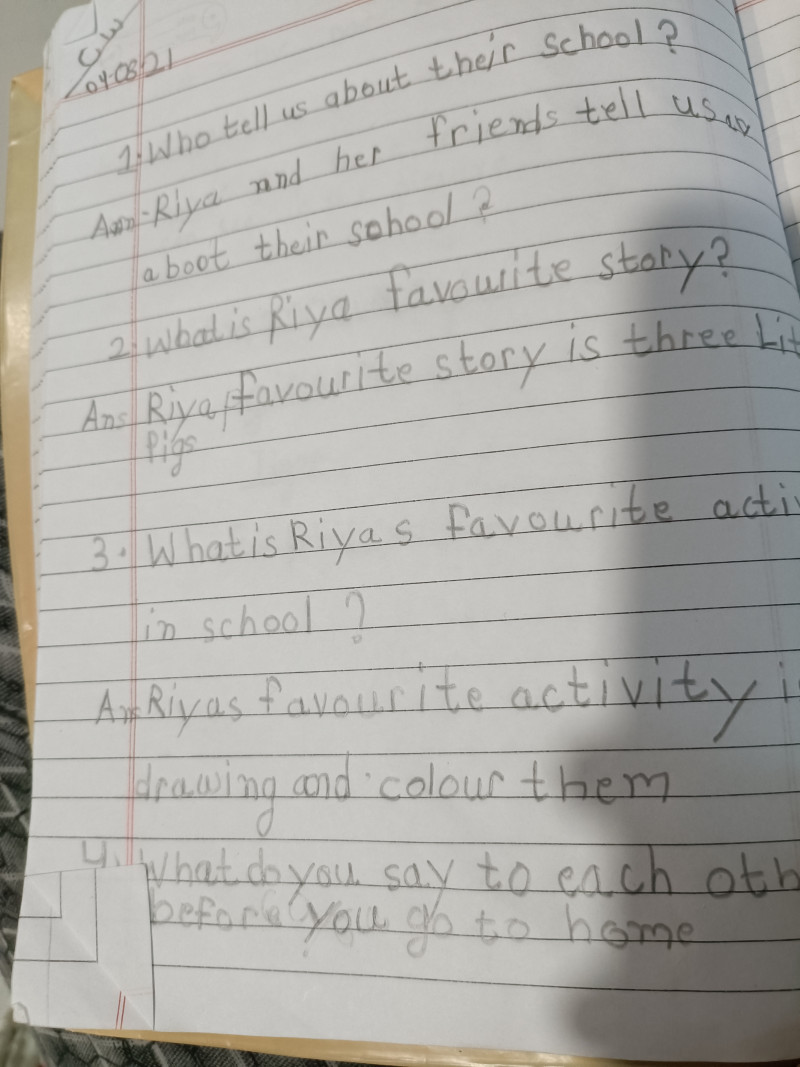 CW
04-08-21
1. Who tell us about their school?
Ans- Riya and her friends tell us
aboot their school?
2. What is Riya favourite story?
Ans Riya favourite story is three Lit
Pigs
3. What is Riyas favourite activ
in school?
Ans Riyas favourite activity i
drawing and colour them
4. What do you say to each oth
before you go to home